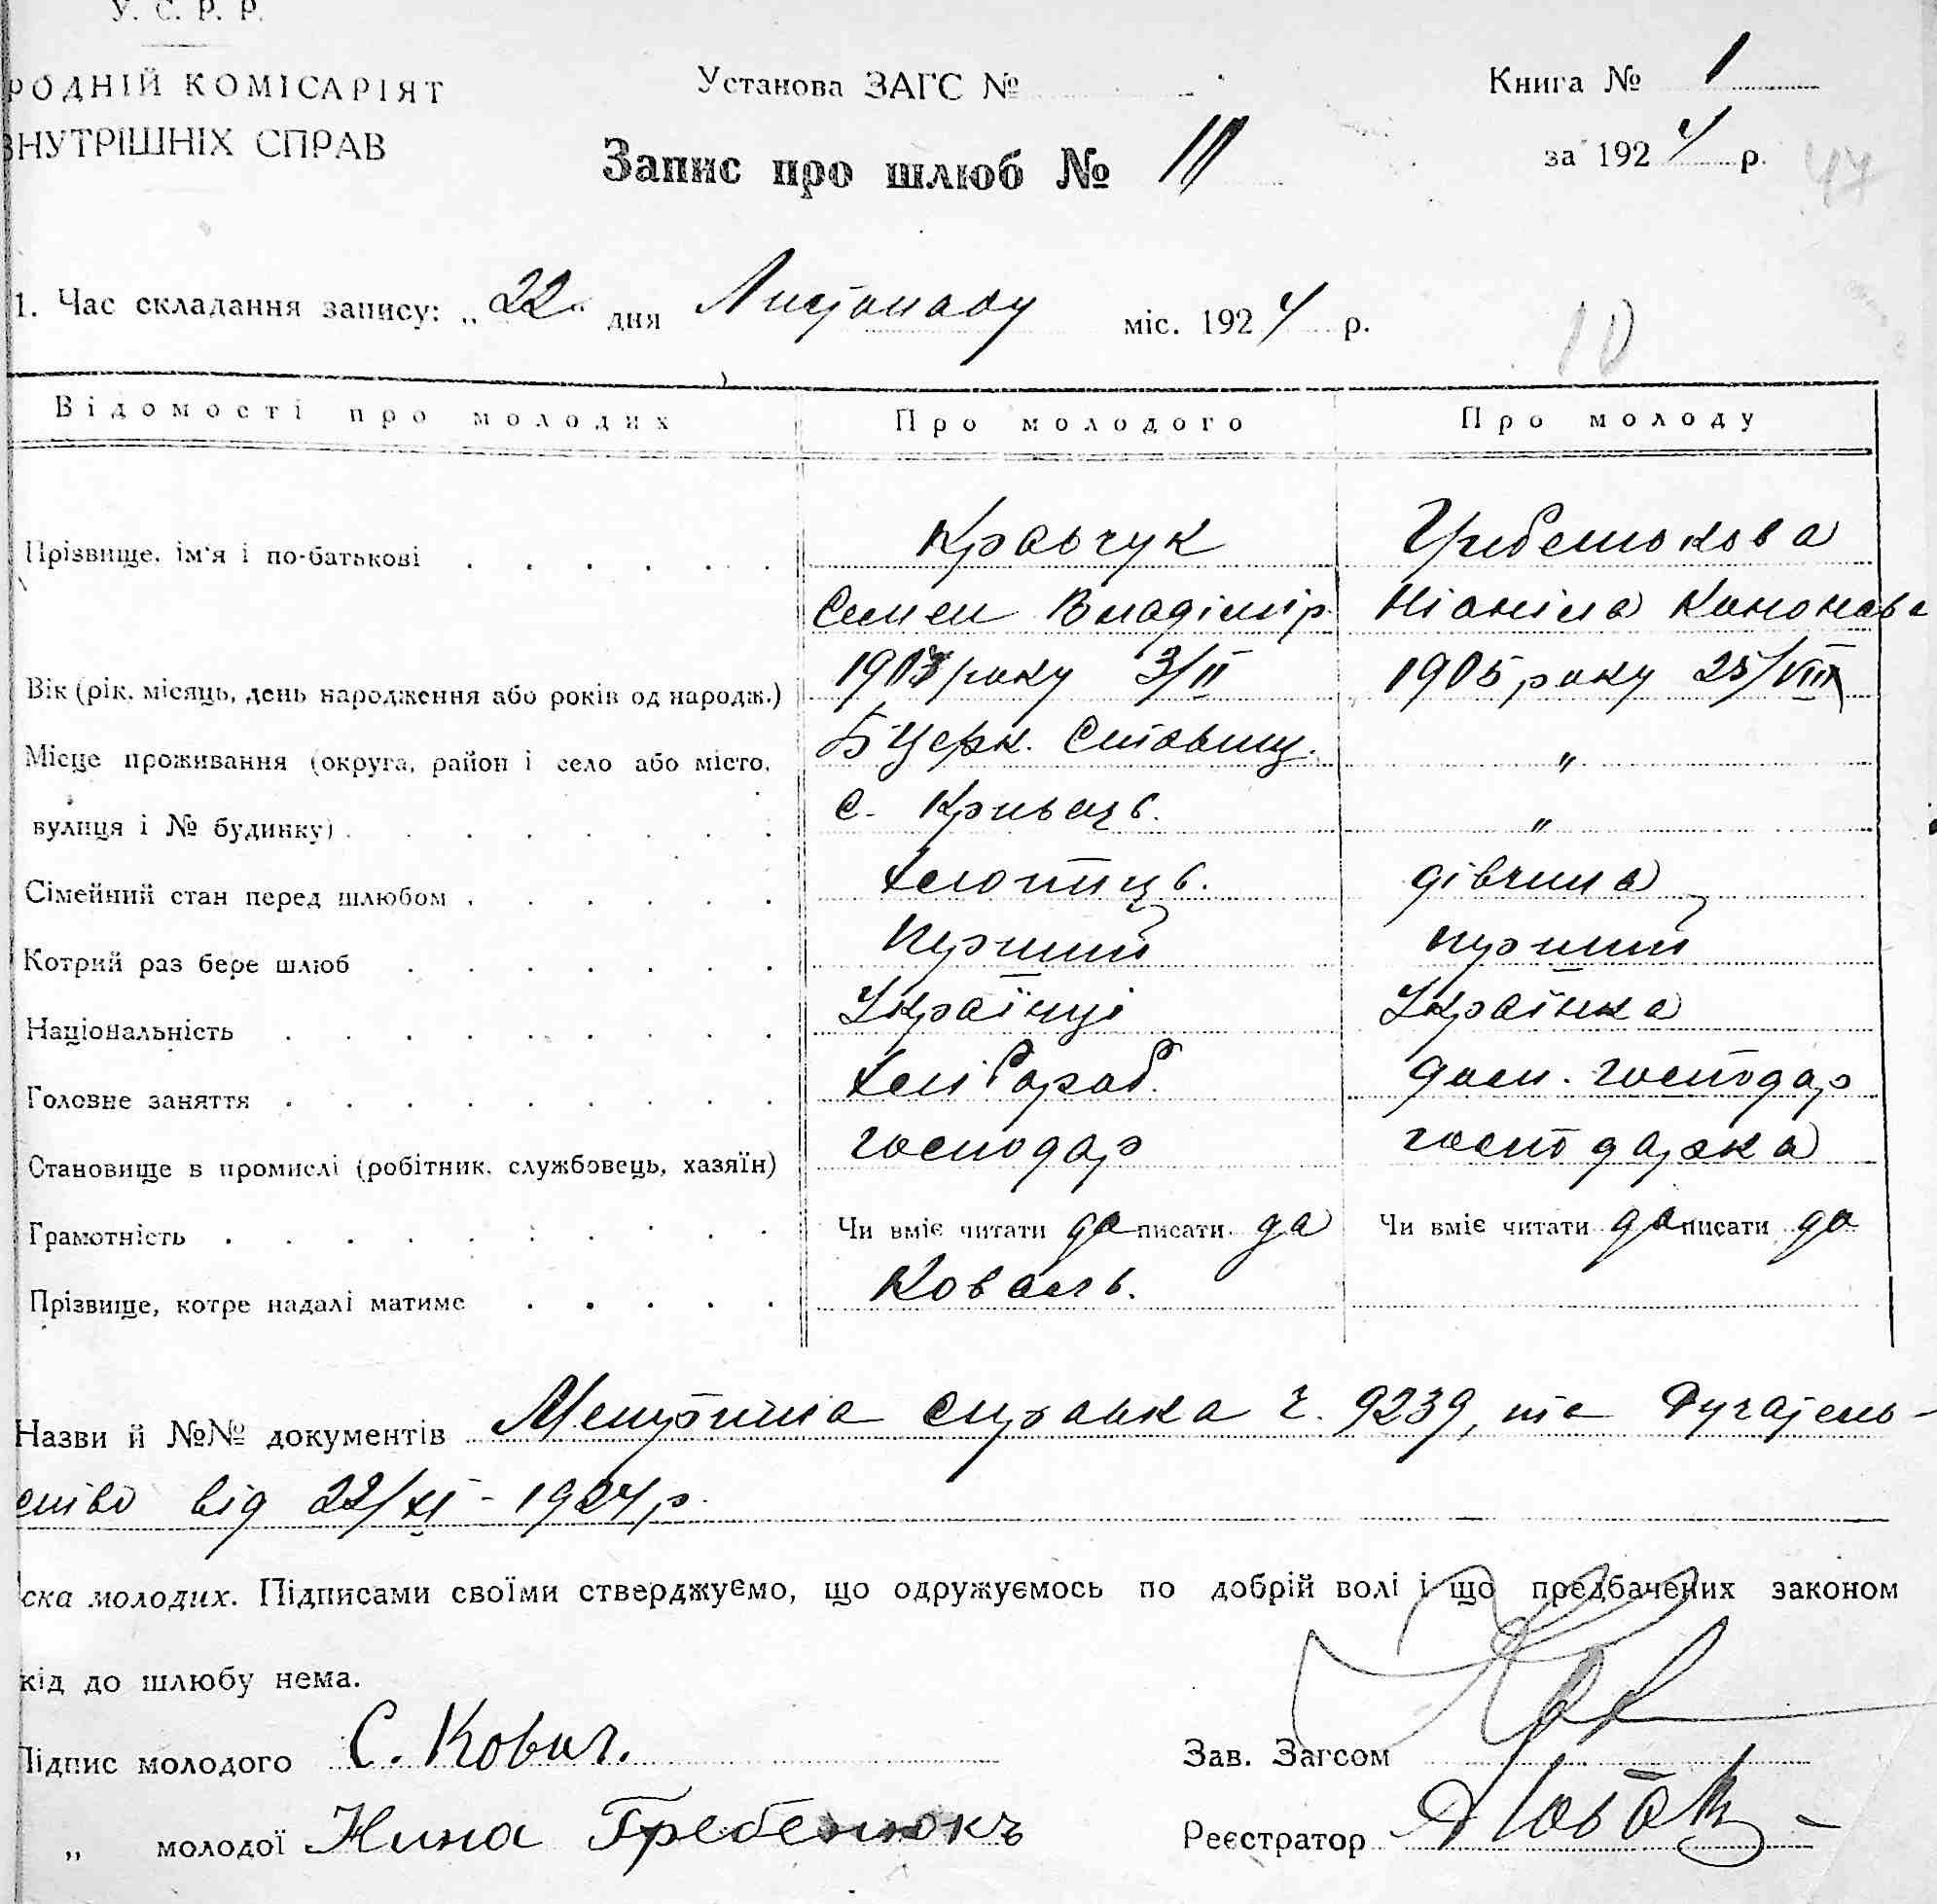 У. С. Р. Р.
РОДНІЙ КОМІСАРІЯТ
ВНУТРІШНІХ СПРАВ
Установа ЗАГС №
Книга № 1
за 1924 р. 47
Запис про шлюб № 10
1. Час складання запису: „22“ дня Листопаду міс. 1924 р.
10
Відомості про молодих Про молодого Про молоду
Прізвище, ім'я і по-батькові Кравчук Гребенюкова
Семен Владімір. Ніоніла Кононова
Вік (рік, місяць, день народження або років од народж.) 1903 року 3/II 1905 року 25/VIII
Місце проживання (округа, район і село або місто, БЦерк. Ставищ. „
вулиця і № будинку) с. Кривець. „
Сімейний стан перед шлюбом Хлопиць. дівчина
Котрий раз бере шлюб перший перший
Національність Українці Українка
Головне заняття Хлібороб. дом. господар
Становище в промислі (робітник, службовець, хазяїн) господар господарка
Грамотність Чи вміє читати да писати да Чи вміє читати да писати да
Прізвище, котре надалі матиме Коваль.
Назви й №№ документів Метрична справка ч. 9239, та Ручатель-
ство від 22/XI - 1924 р.
ска молодих. Підписами своїми стверджуємо, що одружуємось по добрій волі і що предбачених законом
кід до шлюбу нема.
Підпис молодого С. Ковал. Зав. Загсом
„ молодої Нина Гребенюкъ Реєстратор